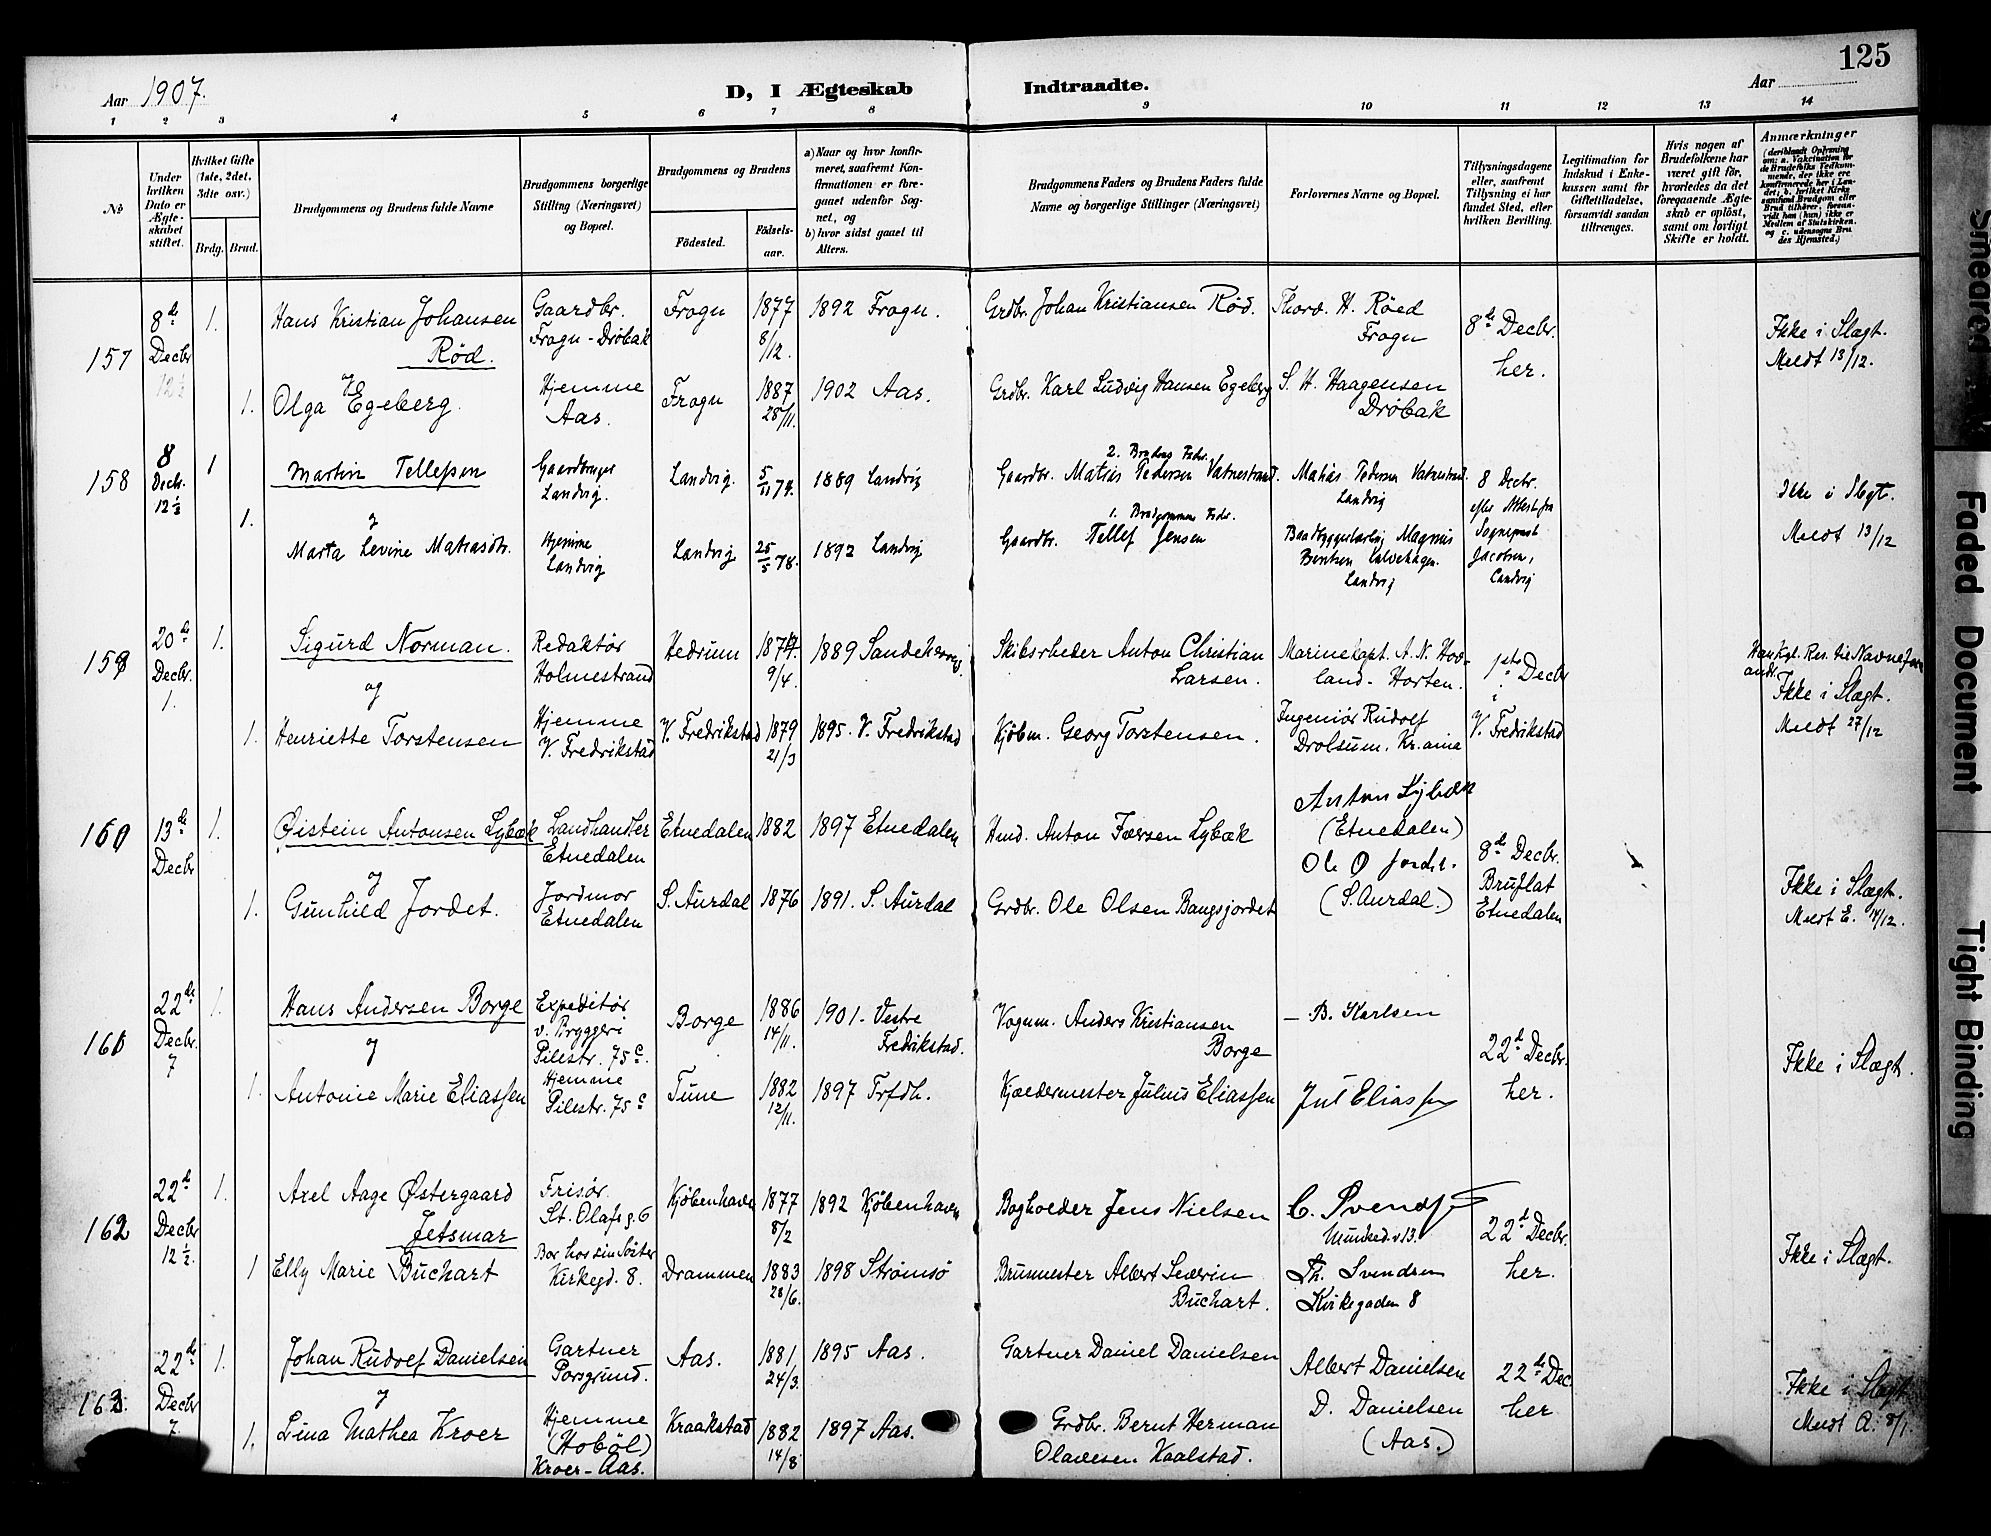 125
Aar 1907.
D, I Ægteskab Indtraadte.
Aar
1 2 3 4 5 6 7 8 9 10 11 12 13 14
No
Under hvilken Dato er Ægteskabet stiftet.
Hvilket Gifte (1ste, 2det, 3die osv.)
Brdg. Brud.
Brudgommens og Brudens fulde Navne
Brudgommens borgerlige Stilling (Næringsvei) og Bopæl.
Brudgommens og Brudens
Fødested. Fødselsaar.
a) Naar og hvor konfirmeret, saafremt Konfirmationen er foregaaet udenfor Sognet, og
b) hvor sidst gaaet til Alters.
Brudgommens Faders og Brudens Faders fulde Navne og borgerlige Stillinger (Næringsvei)
Forlovernes Navne og Bopæl.
Tillysningsdagene eller, saafremt Tillysning ei har fundet Sted, efter hvilken Bevilling.
Legitimation for Indskud i Enkekassen samt for Giftetilladelse, forsaavidt saadan tiltrænges.
Hvis nogen af Brudefolkene har været gift før, hvorledes da det foregaaende Ægteskab er opløst, samt om lovligt Skifte er holdt.
Anmærkninger
157 8de Decbr 12½ 1. Hans Kristian Johansen Rød. Gaardbr. Frogn - Drøbak Frogn 1877 8/12. 1892 Frogn. Grdbr. Johan Kristiansen Rød. Thorv. H. Røed Frogn 8de Decbr. her. Ikke i Slægt. Meldt 13/12.
og
1. Olga Egeberg. Hjemme Aas. Frogn 1887 28/11. 1902 Aas. Grdbr. Karl Ludvig Hansen Egeberg S. H. Haagensen Drøbak
158 8 Decbr. 12½ 1 Martin Tellefsen Gaardbruger Landvig. Landvig. 5/11 74. 1889 Landvig 2. Brudens Fader. Gaardbr. Matias Pedersen Vatnestrand. Mathias Pedersen Vatnestrand. Landvig 8 Decbr. efter Attest fra Sogneprest Jacobsen, Landvig Ikke i Slægt. Meldt 13/12
og
1. Marta Levine Matiasdtr. Hjemme Landvig Landvig 25/5 78. 1892 Landvig 1. Brudgommens Fader. Gaardbr. Tellef Jensen Magnus Bentsen Landvig
159 20de Decbr. 1. 1. Sigurd Norman. Redaktør Holmestrand Hedrum 1874. 9/4. 1889 Sandeherred Skibsrheder Anton Christian Larsen. Marinekapt. A. N. Hovland - Horten. 1ste Decbr i V. Fredrikstad Har Kgl. Res. til Navneforandr. Ikke i Slægt. Meldt 27/12
og
1. Henriette Torstensen Hjemme V. Fredrikstad V. Fredrikstad 1879 21/3 1895. V. Fredrikstad Kjøbm. Georg Torstensen. Ingeniør Rudolf Drolsum. Kr.ania
160 13de Decbr 1. Øistein Antonsen Lybæk Landhandler Etnedalen Etnedalen 1882 1897 Etnedalen Hmd. Anton Færsen Lybæk Anton Lybæk (Etnedalen) 8de Decbr. Bruflat Etnedalen Ikke i Slægt. Meldt E. 14/12.
og
1. Gunhild Jordet. Jordmor Etnedalen S. Aurdal 1876 1891. S. Aurdal Grdbr. Ole Olsen Bangsjordet Ole O Jordet. (S. Aurdal.)
161 22de Decbr. 7 1. Hans Andersen Borge Expeditør v. Bryggeri Pilestr. 75c. Borge 1886 14/11. 1901 - Vestre Fredrikstad. Vognm. Anders Kristiansen Borge – B. Karlsen 22de Decbr. her. Ikke i Slægt.
og
1. Antonie Marie Eliassen Hjemme Pilestr. 75c Tune 1882 12/11. 1897 Trfdh. Kjældermester Julius Eliassen Jul Eliassen
162 22de Decbr 12½. 1. Axel Aage Østergaard Jetsmar Frisør. St. Olafs g. 6 Kjøbenhavn 1877 8/2 1892 Kjøbenhavn Bogholder Jens Nielsen C. Svendsen Munked.v 13. 22de Decbr. her. Ikke i Slægt.
1 Elly Marie Buchart Bor hos sin Søster Kirkegd. 8. Drammen 1883 28/6. 1898 Strømsø Brumester Albert Severin Buchart. Th. Svendsen Kirkegaden 8
163. 22de Decbr 7. 1. Johan Rudolf Danielsen Gartner Porsgrund. Aas. 1881 24/3. 1895 Aas. Gartner Daniel Danielsen Albert Danielsen 22de Dec. her Ikke i Slægt Meldt A. 8/1.
og
1. Lina Mathea Kroer Hjemme (Hobøl) Kroer - Aas. Kraakstad 1882 14/8 1897 Aas. Grdbr. Bernt Herman Olavesen Kaalstad. D. Danielsen (Aas.)
Faded Document
Tight Binding